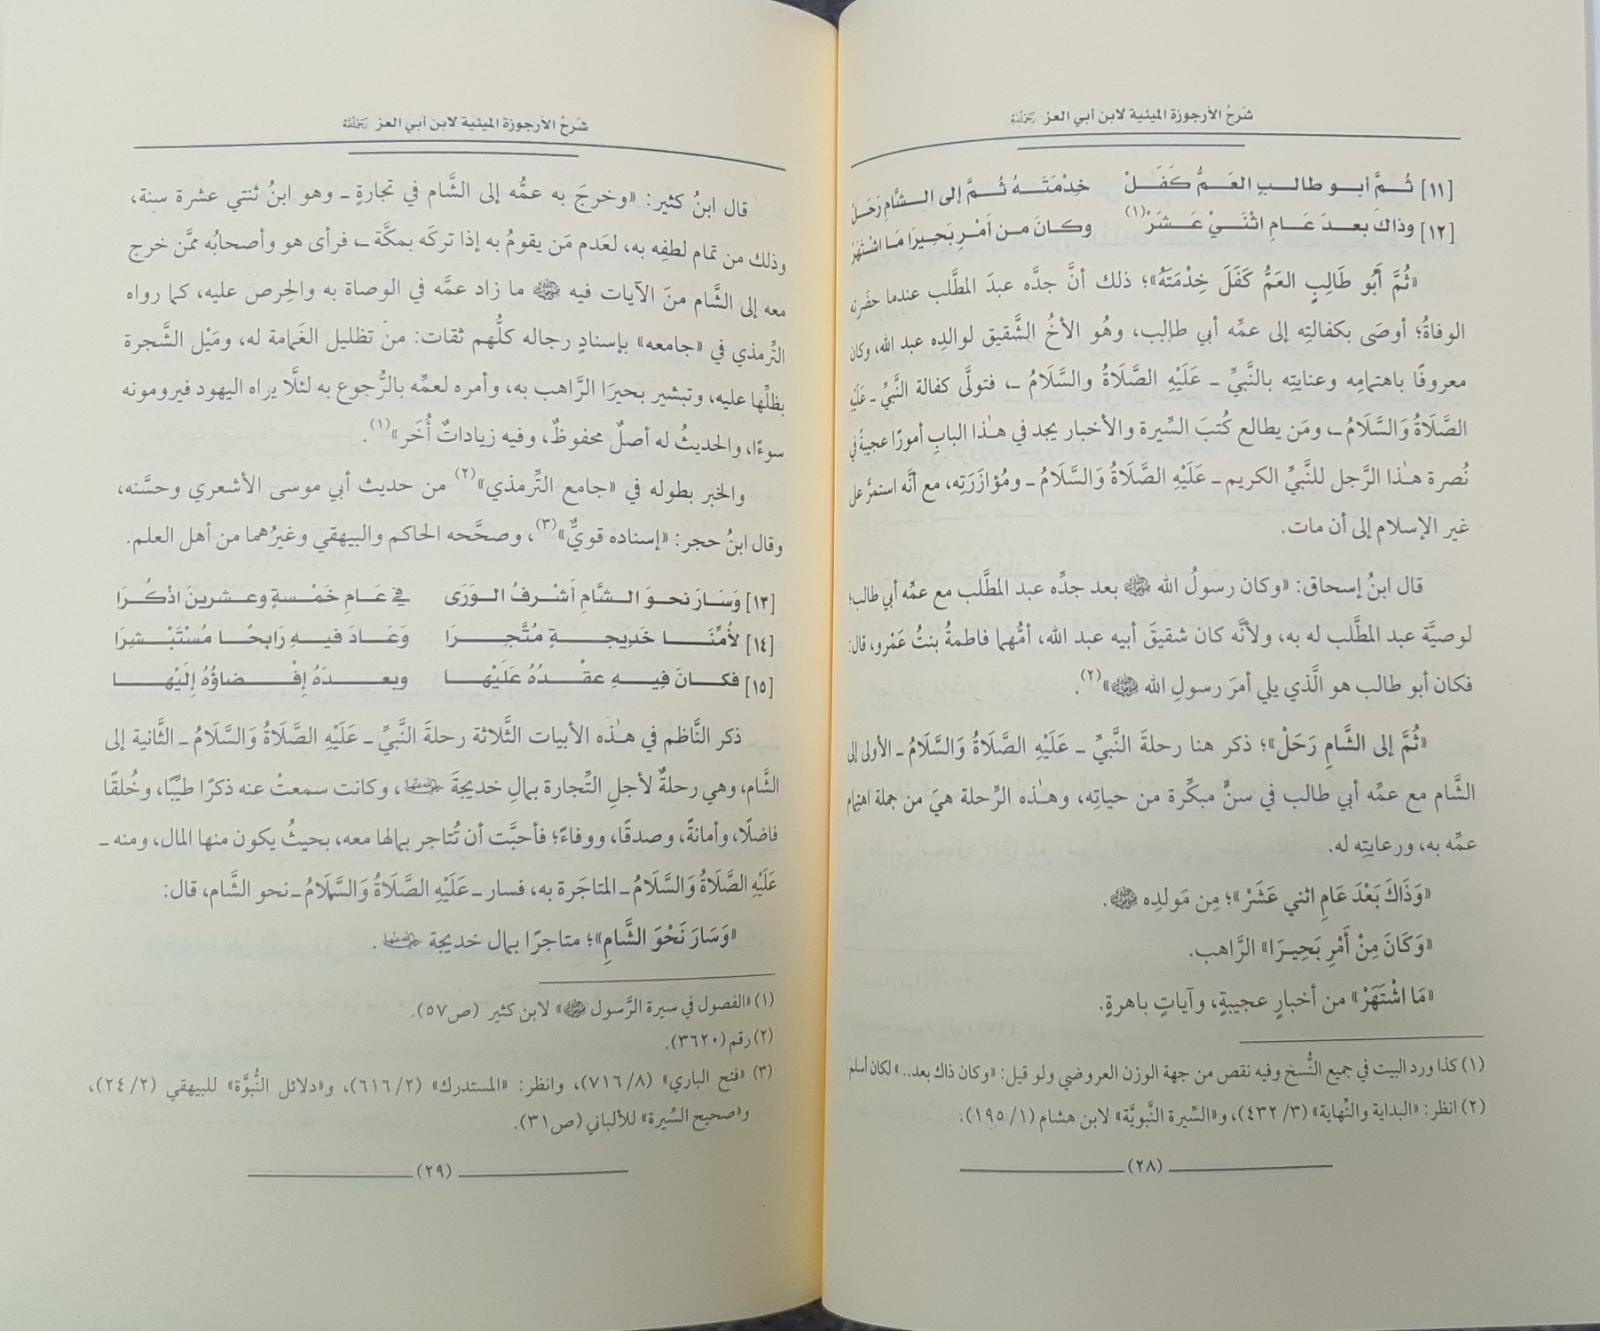 شَرحُ الأرجوزة الميئية لابن أبي العز رَحِمَهُ ٱللَّهُ
[١١] ثُمَّ أبـو طالـبٍ العَـمُّ كَفَـلْ خِدْمَتَـهُ ثُـمَّ إلى الـشَّامِ رَحَلْ
[١٢] وذاكَ بعـدَ عَـامِ اثْنَـيْ عَـشَرْ(١) وكـانَ مـن أَمْـرِ بَحـيرَا مَـا اشْـتَهَرْ
«ثُمَّ أَبُو طَالِبٍ العَمُّ كَفَلَ خِدْمَتَهُ»؛ ذلك أنَّ جدَّه عبدَ المطَّلب عندما حضَرته
الوفاةُ؛ أوصَى بكفالتِه إلى عمِّه أبي طالب، وهُو الأخُ الشَّقيق لوالدِه عبد الله، وكان
معروفًا باهتمامِه وعنايتِه بالنَّبيِّ ـ عَلَيْهِ الصَّلَاةُ والسَّلَامُ ـ، فتولَّى كفالة النَّبيِّ ـ عَلَيْهِ
الصَّلَاةُ وَالسَّلَامُ ـ، ومَن يطالع كُتبَ السِّيرة والأخبار يجد في هـٰذا البابِ أمورًا عجيبةً في
نُصرة هـٰذا الرَّجل للنَّبيِّ الكريم ـ عَلَيْهِ الصَّلَاةُ وَالسَّلَامُ ـ ومُؤازَرَتِه، مع أنَّه استمرَّ على
غير الإسلام إلى أن مات.
قال ابنُ إسحاق: «وكان رسولُ الله ﷺ بعد جدِّه عبد المطَّلب مع عمِّه أبي طالب؛
لوصيَّة عبد المطَّلب له به، ولأنَّه كان شقيقَ أبيه عبد الله، أمُّهما فاطمةُ بنتُ عَمْرو، قال:
فكان أبو طالب هو الَّذي يلي أمرَ رسولِ الله ﷺ»(٢).
«ثُمَّ إلى الشَّامِ رَحَلْ»؛ ذكر هنا رحلةَ النَّبيِّ ـ عَلَيْهِ الصَّلَاةُ وَالسَّلَامُ ـ الأولى إلى
الشَّام مع عمِّه أبي طالب في سنٍّ مبكِّرة من حياتِه، وهـٰذه الرِّحلة هيَ من جملة اهتمام
عمِّه به، ورعايتِه له.
«وَذَاكَ بَعْدَ عَامِ اثني عَشَرْ»؛ مِن مَولدِه ﷺ.
«وَكَانَ مِنْ أَمْرِ بَحِيـرَا» الرَّاهب.
«مَا اشْتَهَرْ» من أخبارٍ عجيبةٍ، وآياتٍ باهرةٍ.
(١) كذا ورد البيت في جميع النُّسخ وفيه نقص من جهة الوزن العروضي ولو قيل: «وكان ذاك بعد..» لكان أسلم.
(٢) انظر: «البداية والنِّهاية» (٣/ ٤٣٢)، و«السِّيرة النَّبويَّة» لابن هشام (١/ ١٩٥).
(٢٨)
شَرحُ الأرجوزة الميئية لابن أبي العز رَحِمَهُ ٱللَّهُ
قال ابنُ كثير: «وخرجَ به عمُّه إلى الشَّام في تجارةٍ ـ وهو ابنُ ثنتي عشرة سنة،
وذلك من تمام لطفِه به، لعَدم مَن يقومُ به إذا تركَه بمكَّة ـ فرأى هو وأصحابُه ممَّن خرج
معه إلى الشَّام منَ الآيات فيه ﷺ ما زاد عمَّه في الوصاة به والحِرص عليه، كما رواه
التِّرمذي في «جامعه» بإسنادٍ رجاله كلُّهم ثقات: من تظليل الغَمامة له، ومَيْل الشَّجرة
بظلِّها عليه، وتبشير بحيرَا الرَّاهب به، وأمره لعمِّه بالرُّجوع به لئلَّا يراه اليهود فيرومونه
سوءًا، والحديثُ له أصلٌ محفوظٌ، وفيه زياداتٌ أُخَر»(١).
والخبر بطوله في «جامع التِّرمذي»(٢) من حديث أبي موسى الأشعري وحسَّنه،
وقال ابنُ حجر: «إسناده قويٌّ»(٣)، وصحَّحه الحاكم والبيهقي وغيرُهما من أهل العلم.
[١٣] وَسَـارَ نحـوَ الـشَّامِ أَشْـرفُ الـوَرَى في عَـامِ خَمْـسةٍ وعـشرينَ اذْكُـرَا
[١٤] لأُمِّنَـا خَدِيجـةٍ مُتَّجِـرَا وَعَـادَ فيـهِ رَابِحًـا مُسْتَبْـشِرَا
[١٥] فكـانَ فِيـهِ عقْـدُهُ عَلَيْهـا وبعـدَهُ إِفْـضاؤُهُ إِلَيْهـا
ذكر النَّاظم في هـٰذه الأبيات الثَّلاثة رحلةَ النَّبيِّ ـ عَلَيْهِ الصَّلَاةُ وَالسَّلَامُ ـ الثَّانية إلى
الشَّام، وهي رحلةٌ لأجلِ التِّجارة بمالِ خديجةَ رَضِيَ ٱللَّهُ عَنْهَا، وكانت سمعتْ عنه ذكرًا طيِّبًا، وخُلقًا
فاضلًا، وأمانةً، وصدقًا، ووفاءً؛ فأحبَّت أن تُتاجر بمالها معه، بحيثُ يكون منها المال، ومنه ـ
عَلَيْهِ الصَّلَاةُ وَالسَّلَامُ ـ المتاجَرة به، فسار ـ عَلَيْهِ الصَّلَاةُ وَالسَّلَامُ ـ نحو الشَّام، قال:
«وَسَارَ نَحْوَ الشَّامِ»؛ متاجرًا بمال خديجة رَضِيَ ٱللَّهُ عَنْهَا.
(١) «الفصول في سيرة الرَّسول ﷺ» لابن كثير (ص٥٧).
(٢) رقم (٣٦٢٠).
(٣) «فتح الباري» (٨/ ٧١٦)، وانظر: «المستدرك» (٢/ ٦١٦)، و«دلائل النُّبوَّة» للبيهقي (٢/ ٢٤)،
و«صحيح السِّيرة» للألباني (ص٣١).
(٢٩)